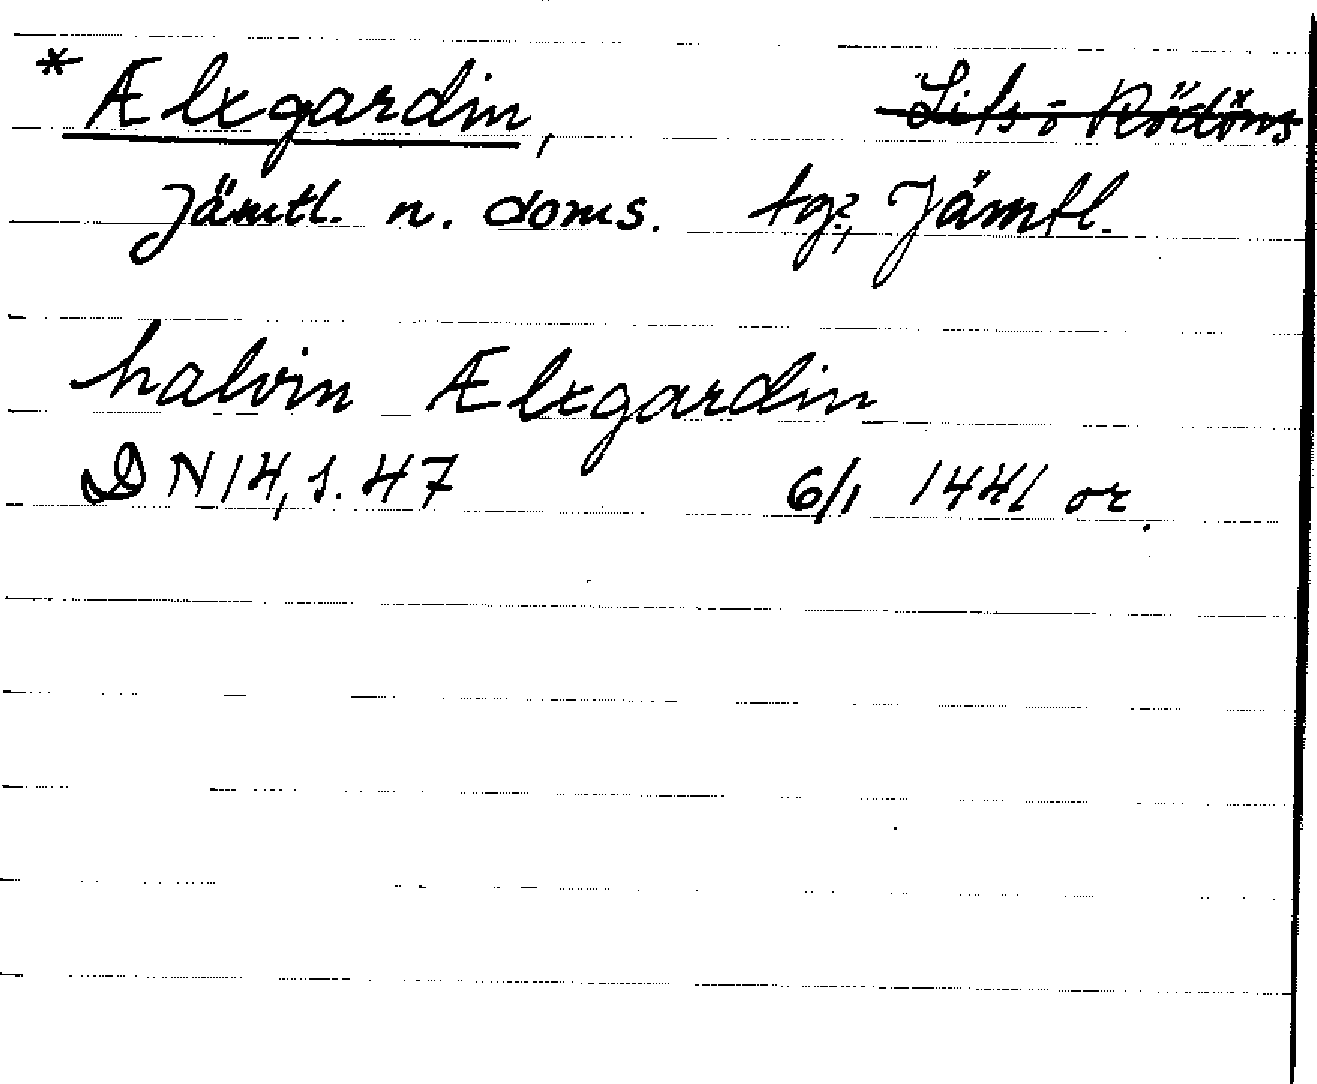 * Ælxgardin, Lits o Rödöns
Jämtl. n. doms. tg?, Jämtl.
halvin Ælxgardin
DN 14, s. 47 6/1 1441 or.